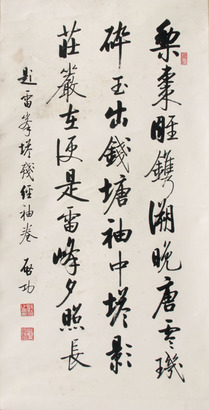 梨棗雕鎸溯晚唐零璣
碎玉出錢塘袖中塔影
莊嚴在便是雷峰夕照長
題雷峯塔殘經袖卷 啟功